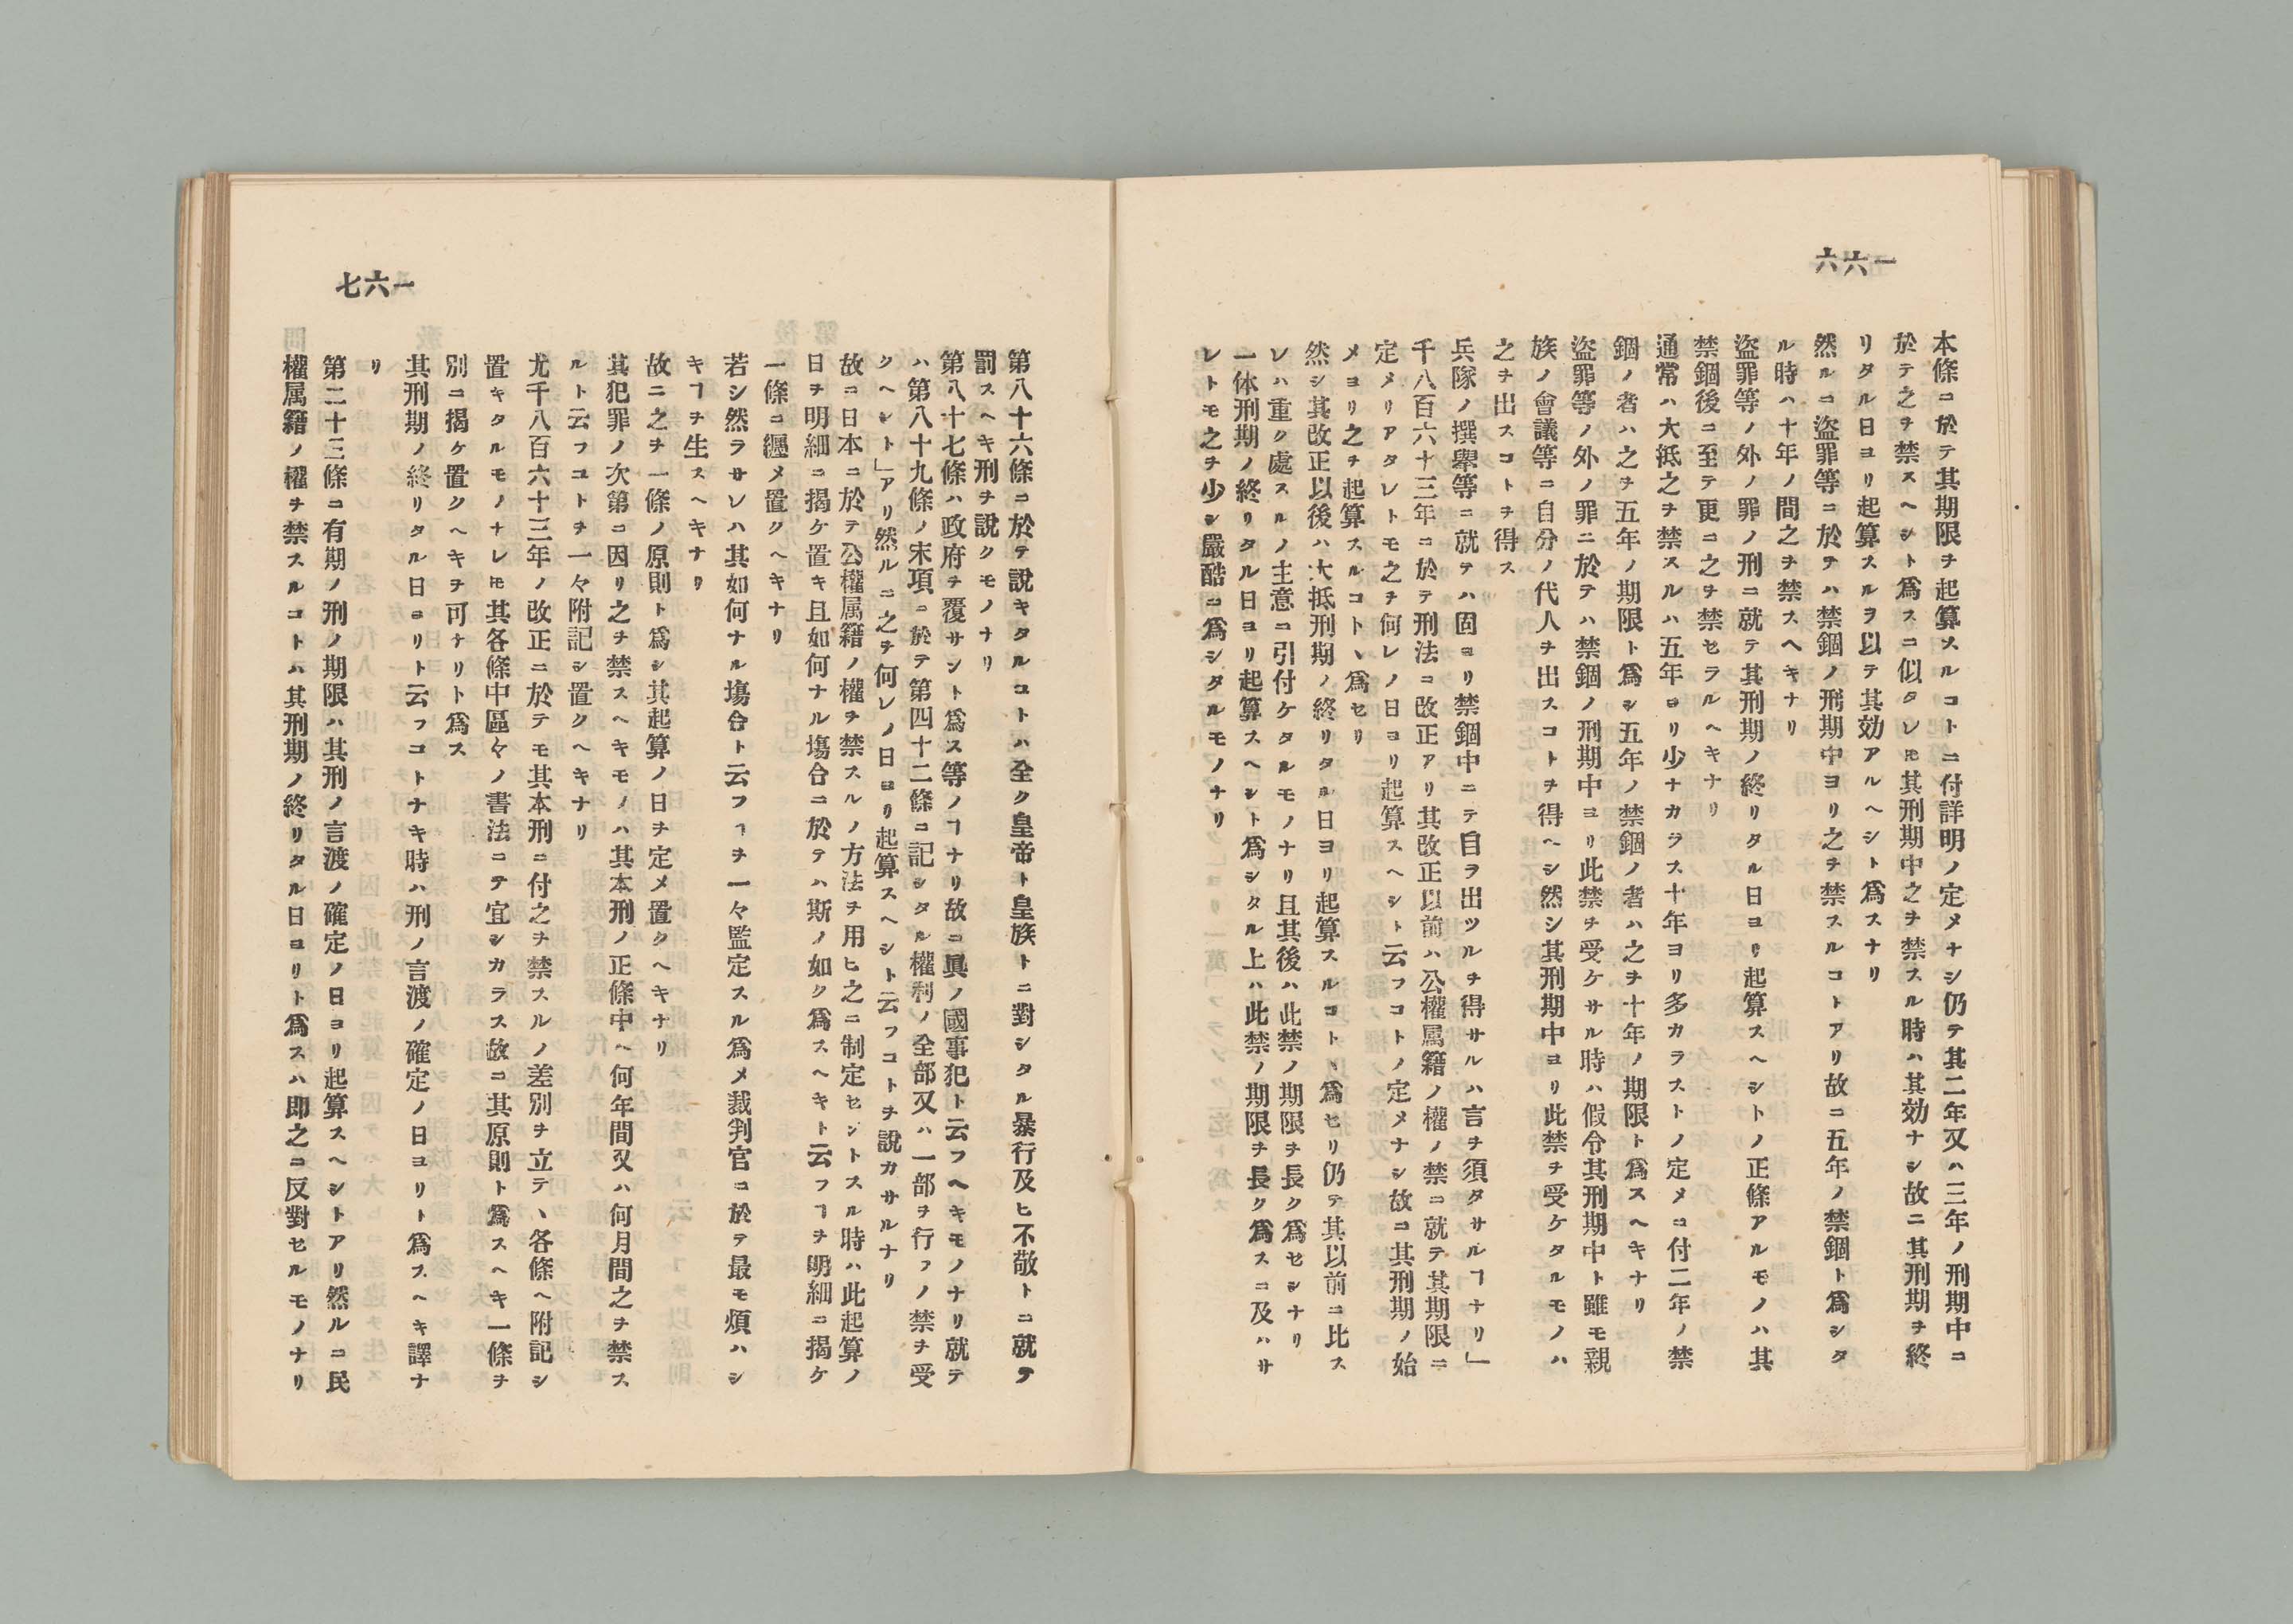 一六六
本條ニ於テ其期限ヲ起算スルコトニ付詳明ノ定メナシ仍テ其二年又ハ三年ノ刑期中ニ
於テ之ヲ禁スヘシト爲スニ似タレ𪜈其刑期中之ヲ禁スル時ハ其効ナシ故ニ其刑期ヲ終
リタル日ヨリ起算スルヲ以テ其効アルヘシト爲スナリ
然ルニ盜罪等ニ於テハ禁錮ノ刑期中ヨリ之ヲ禁スルコトアリ故ニ五年ノ禁錮ト爲シタ
ル時ハ十年ノ間之ヲ禁スヘキナリ
盜罪等ノ外ノ罪ノ刑ニ就テ其刑期ノ終リタル日ヨリ起算スヘシトノ正條アルモノハ其
禁錮後ニ至テ更ニ之ヲ禁セラルヘキナリ
通常ハ大抵之ヲ禁スルハ五年ヨリ少ナカラス十年ヨリ多カラストノ定メニ付二年ノ禁
錮ノ者ハ之ヲ五年ノ期限ト爲シ五年ノ禁錮ノ者ハ之ヲ十年ノ期限ト爲スヘキナリ
盜罪等ノ外ノ罪ニ於テハ禁錮ノ刑期中ヨリ此禁ヲ受ケサル時ハ假令其刑期中ト雖モ親
族ノ會議等ニ自分ノ代人ヲ出スコトヲ得ヘシ然シ其刑期中ヨリ此禁ヲ受ケタルモノハ
之ヲ出スコトヲ得ス
兵隊ノ撰擧等ニ就テハ固ヨリ禁錮中ニテ自ヲ出ツルヲ得サルハ言ヲ須タサルヿナリ」
千八百六十三年ニ於テ刑法ニ改正アリ其改正以前ハ公權属籍ノ權ノ禁ニ就テ其期限ニ
定メリアタレトモ之ヲ何レノ日ヨリ起算スヘシト云フコトノ定メナシ故ニ其刑期ノ始
メヨリ之ヲ起算スルコトヽ爲セリ
然シ其改正以後ハ大抵刑期ノ終リタル日ヨリ起算スルコトヽ爲セリ仍テ其以前ニ比ス
レハ重ク處スルノ主意ニ引付ケタルモノナリ且其後ハ此禁ノ期限ヲ長ク爲セシナリ
一体刑期ノ終リタル日ヨリ起算スヘシト爲シタル上ハ此禁ノ期限ヲ長ク爲スニ及ハサ
レトモ之ヲ少シ嚴酷ニ爲シタルモノナリ
一六七
第八十六條ニ於テ說キタルコトハ全ク皇帝ト皇族トニ對シタル暴行及ヒ不敬トニ就テ
罰スヘキ刑ヲ說クモノナリ
第八十七條ハ政府ヲ覆サント爲ス等ノヿナリ故ニ眞ノ國事犯ト云フヘキモノナリ就テ
ハ第八十九條ノ末項ニ於テ第四十二條ニ記シタル權利ノ全部又ハ一部ヲ行フノ禁ヲ受
クヘシト」アリ然ルニ之ヲ何レノ日ヨリ起算スヘシト云フコトヲ說カサルナリ
故ニ日本ニ於テ公權属籍ノ權ヲ禁スルノ方法ヲ用ヒ之ニ制定セントスル時ハ此起算ノ
日ヲ明細ニ揭ケ置キ且如何ナル塲合ニ於テハ斯ノ如ク爲スヘキト云フヿヲ明細ニ揭ケ
一條ニ纒メ置クヘキナリ
若シ然ラサレハ其如何ナル塲合ト云フヿヲ一々監定スル爲メ裁判官ニ於テ最モ煩ハシ
キヿヲ生スヘキナリ
故ニ之ヲ一條ノ原則ト爲シ其起算ノ日ヲ定メ置クヘキナリ
其犯罪ノ次第ニ因リ之ヲ禁スヘキモノハ其本刑ノ正條中ヘ何年間又ハ何月間之ヲ禁ス
ルト云フコトヲ一々附記シ置クヘキナリ
尤千八百六十三年ノ改正ニ於テモ其本刑ニ付之ヲ禁スルノ差別ヲ立テヽ各條ヘ附記シ
置キタルモノナレ𪜈其各條中區々ノ書法ニテ宜シカラス故ニ其原則ト爲スヘキ一條ヲ
別ニ揭ケ置クヘキヲ可ナリト爲ス
其刑期ノ終リタル日ヨリト云フコトナキ時ハ刑ノ言渡ノ確定ノ日ヨリト爲スヘキ譯ナ
リ
第二十三條ニ有期ノ刑ノ期限ハ其刑ノ言渡ノ確定ノ日ヨリ起算スヘシトアリ然ルニ民
權属籍ノ權ヲ禁スルコトハ其刑期ノ終リタル日ヨリト爲スハ即之ニ反對セルモノナリ